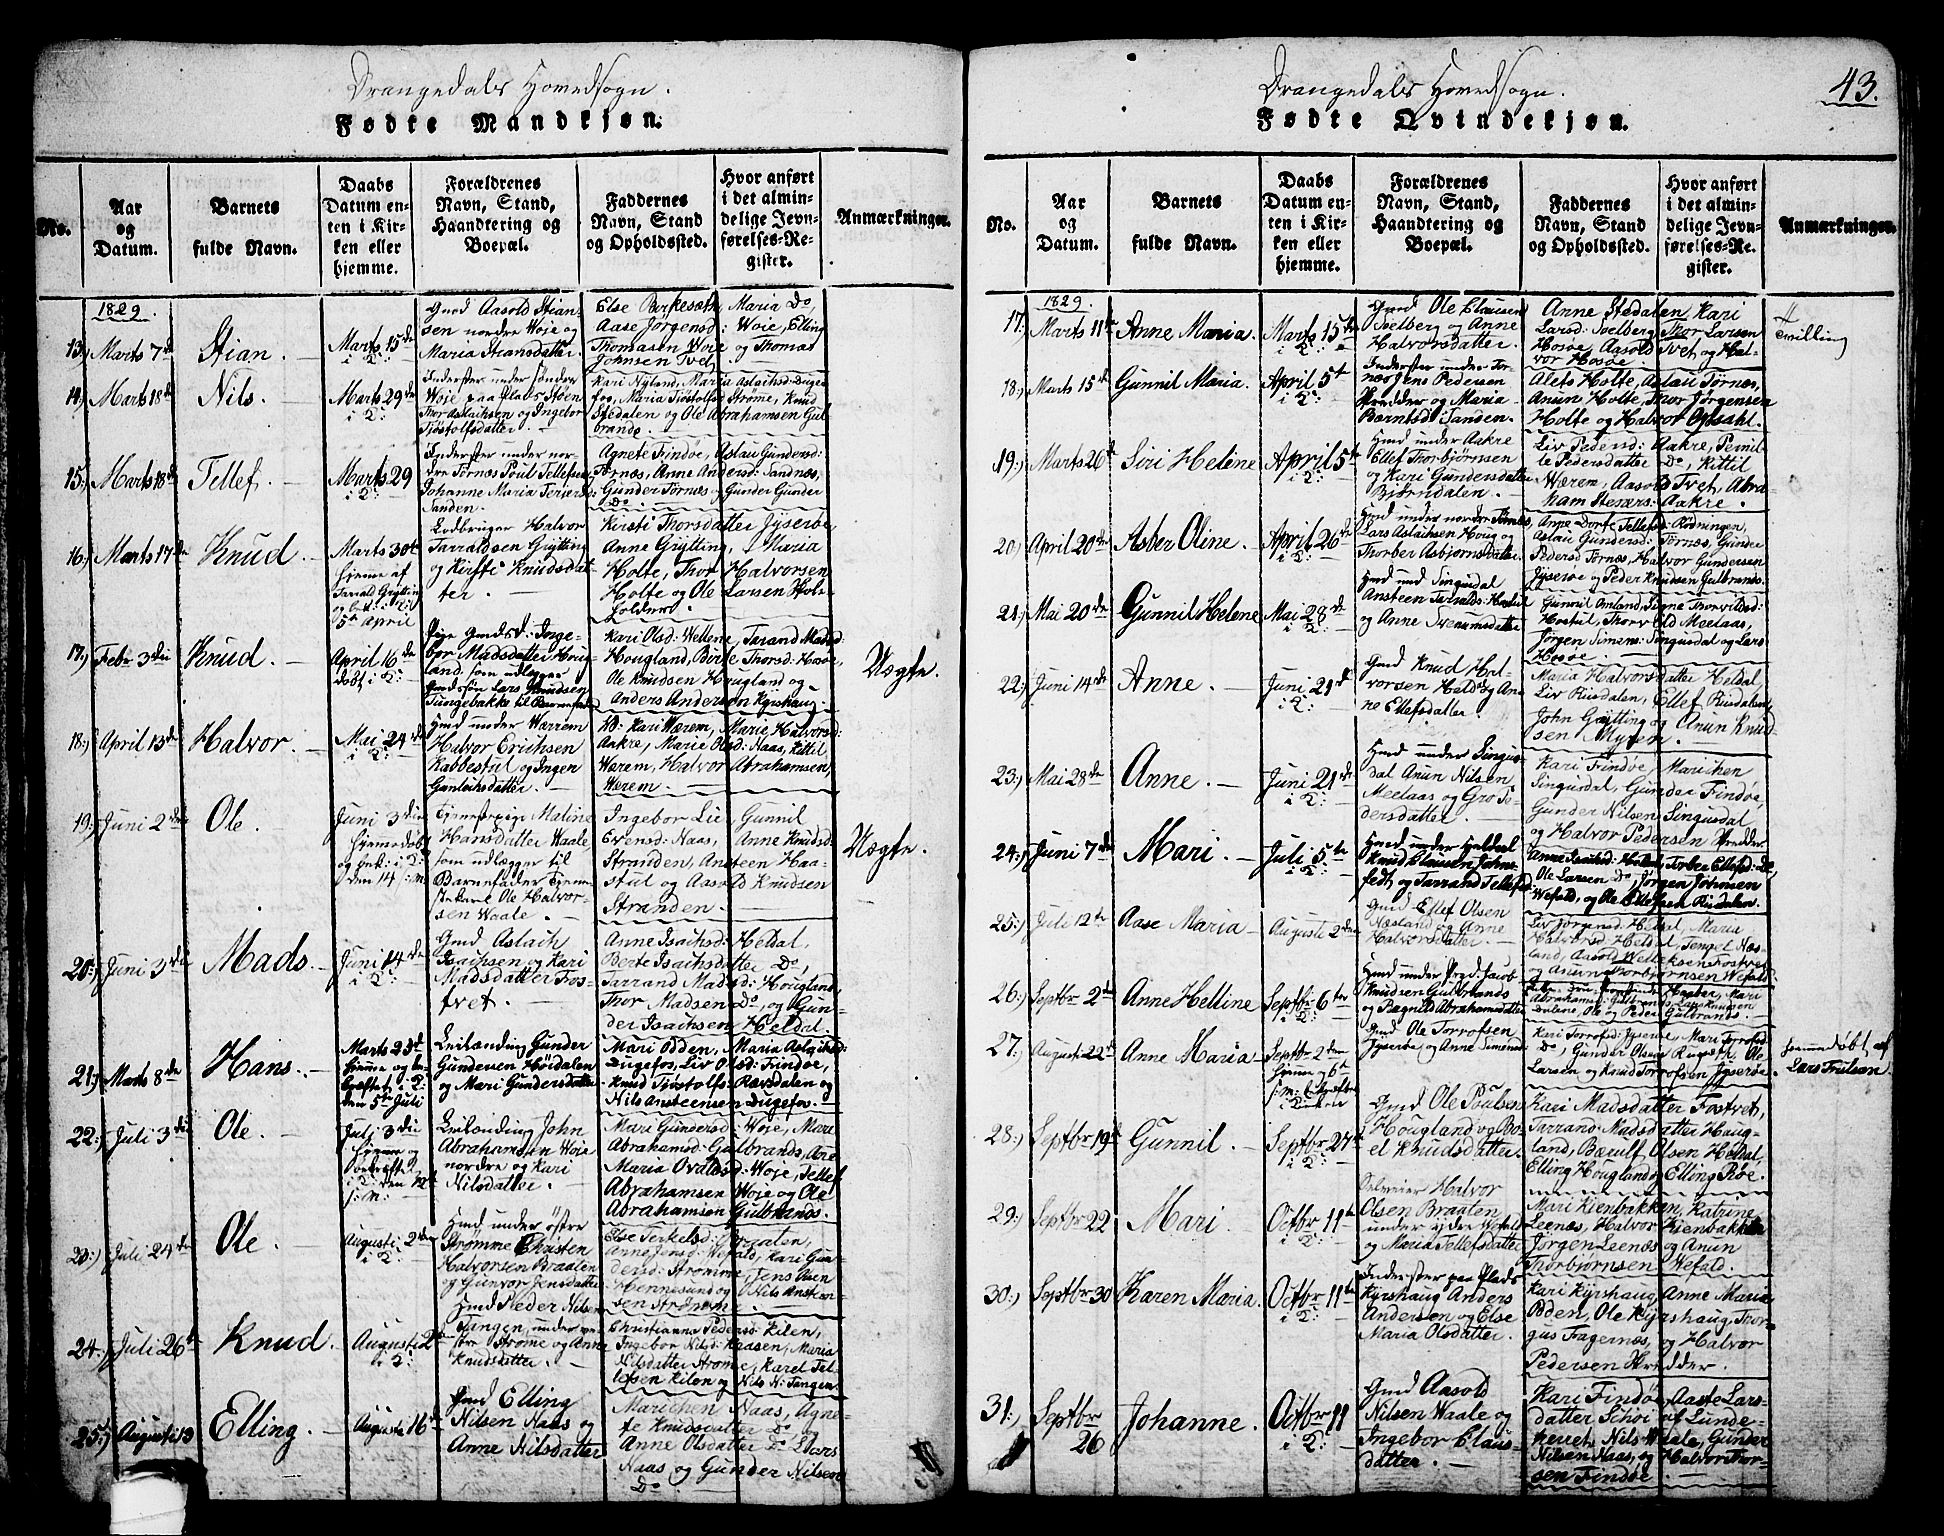 Drangedals Hovedsogn.
Fødte Mandkjøn.
No.
Aar og Datum.
Barnets fulde Navn.
Daabs Datum enten i Kirken eller hjemme.
Forældrenes Navn, Stand, Haandtering og Boepæl.
Faddernes Navn, Stand og Opholdssted.
Hvor anført i det almindelige Jevnførelses-Register.
Anmærkninger.
1829.
13.) Marts 7de Stian. Marts 15de i K:
Gmd Aasold Stian-
sen nordre Woje og
Maria Stiansdatter.
Else Birkesæth, Maria Do,
Aase Jørgensd: Woje, Elling
Thomasen Woje og Thomas
Johnsen Tved
14.) Marts 18de Nils. Marts 29de i K:
Inderster under søndre
Woje paa Plads Støen
Thor Aslachsen og Ingebor
Tjøstolfsdatter.
Kari Nyland, Maria Aslachsd: Duge-
fos, Maria Tjøstolfsd Strøme, Knud
Stedalen og Ole Abrahamsen Gul-
brands.
15.) Marts 18de Tellef. Marts 29 i K:
Inderster under nor-
dre Tørnes Poul Tellefsen
Johanne Maria Terjersd:
Sanden.
Agnete Findøe, Aslau Gundersd:
Tørnes, Anne Andersd: Sandnes,
Gunder Tørnes og Gunder Gunder
Do.
16.) Marts 17de Knud Marts 30te
hjemme af
Tarald Grytting
og bek: i K:
5te April
Lodbruger Halvor
Tarraldsen Grytting
og Kirsti Knudsdat-
ter.
Kirsti Thorsdatter Jyserøe
Anne Grytting, Maria
Holte, Thor Halvorsen
Holte og Ole Larsen Hols-
folden.
17.) Febr 3die Knud. April 16de
døbt i K:
Pige Gmdsd: Inge-
bor Madsdatter Houg-
land, som udlægger
Gmdsøn Lars Knudsen
Tungebakke til Barnefader
Kari Olsd: Wellene, Tarand Madsd:
Hougland, Birte Thorsd: Hosøe,
Ole Knudsen Hougland og
Anders Anderson Kyrshaug.
Uægte.
18.) April 13de Halvor. Mai 24de i K:
Hmd under Wærem
Halvor Erichsen
Kabbestul og Ingen
Gunleichsdatter.
Kari Wærem, Marie Halvorsd:
Aakre, Marie Olsd: Naas, Kittil
Wærem, Halvor Abrahamsen,
Wærem.
19.) Juni 2den Ole. Juni 3die
hjemmedøbt
og bek: i K:
den 14 s: m:
Tjenestepige Maline
Hansdatter Waale
som udlægger til
Barnefader Tjene-
stekarl Ole Halvor-
sen Waale.
Ingebor Lie, Gunnil
Evensd: Naas, Anne Knudsd:
Stranden, Ansteen Haa-
stul og Aasold Knudsen
Stranden.
Uægte.
20.) Juni 3die Mads. Juni 14de i K:
Gmd Aslach
Isachsen og Kari
Madsdatter Fos-
tvet.
Anne Isachsd: Heldal,
Berte Isachsdatter Do,
Tarrand Madsd: Hougland,
Thor Madsen Do, og Gun-
der Isachsen Heldal.
21.) Marts 8de Hans. Marts 23de
hjemme og be-
kræftet i K:
den 5te Juli
Leilænding Gunder
Gundersen Høidalen
og Mari Gundersdatter
Mari Odden, Maria Aslachsd:
Dugefos, Liv Olsd: Findøe,
Knud Tjøstolfs: Rævsdalen og
Nils Ansteensen Dugefos.
22.) Juli 3die Ole. Juli 3die
hjemme og
bekræftet
i K: den 12te
s: m:
Leilænding John
Abrahamsen Woje
nordre og Kari
Nilsdatter.
Mari Gundersd: Woje, Mari
Abrahamsd: Gulbrands, Ane
Maria Ovaldsd: Woje, Tellef
Abrahamsen Woje og Ole
Abrahamsen Gulbrands.
23.) Juli 24de Ole. Augusti 2den i K:
Hmd under østre
Strømme Christen
Halvorsen Braaten
og Gunvor Jensdatter
Else Terkelsd: Braaten,
Anne Jensd: Wefald, Kari Gun-
dersd: Strømme, Jens Aasen
Hennesund og Nils Anstien-
sen Strømme.
24.) Juli 26de Knud. Augusti 2den i K:
Hmd Peder Nilsen
Tangen, under ve-
stre Strøme og Anne
Knudsdatter.
Christianna Pedersd: Kilen,
Ingebor Nilsd: Kaasen, Maria
Nilsdatter Strøme, Karel Tel-
lefsen Kilen og Nils N: Tangen.
25.) Augusti 13 Elling. Augusti 16de
Gmd Elling
Nilsen Naas og
Anne Nilsdatter
Marichen Naas, Agne-
te Knudsdatter Do og
Anne Olsdatter Do, Lars
Naas og Gunder Nilsen
Do
Drangedals Hovedsogn.
43.
Fødte Qvindekjøn.
No.
Aar og Datum.
Barnets fulde Navn.
Daabs Datum enten i Kirken eller hjemme.
Forældrenes Navn, Stand, Haandtering og Boepæl.
Faddernes Navn, Stand og Opholdssted.
Hvor anført i det almindelige Jevnførelses-Register.
Anmærkninger.
1829.
17.) Marts 11te Anne Maria. Marts 15de i K:
Gmd Ole Clausen
Solberg og Anne
Halvorsdatter.
Anne Stedalen Kari
Larsd: Solberg Thor Larsen
Hosøe, Aasold Tvet, og Hal-
vor Hosøe.
Tvilling
18.) Marts 15de Gunnil Maria. April 5te i K:
Inderster under Tør-
næs Jens Pedersen
Skredder og Maria
Berntsd: Sanden.
Alets Holte, Aslau Tørnes,
Anun Holte, Thor Jørgensen
Holte og Halvor Opsahl.
19.) Marts 26de Siri Helene April 5te i K:
Hmd under Aakre
Ellef Thorbjørnsen
og Kari Gundersdatter
Bjørndalen.
Liv Pedersd: Aakre, Pernil-
le Pedersdatter Do, Kittil
Wærem, Aasold Tvet, Abra-
ham Aakre.
20.) April 20de Asber Oline. April 26de i K:
Hmd under nordre Tørnes
Lars Aslachsen Houg og
Thorber Asbjørnsdatter.
Anne Dorte Tellefsd: Rødningen,
Aslau Gundersd: Tørnes, Gunder
Pedersd Tørnes, Halvor Gundersen
Jyserøe og Peder Knudsen Gulbrands.
21.) Mai 20de Gunnil Helene Mai 28de i K:
Hmd und Singusdal
Ansteen Taralds: Hostul
og Anne Svenumsdatter
Gunnil Omland, Signe Thorvildsd:
Hostul, Thorvold Meelaas,
Jørgen Simens: Singusdal og Lars
Hosøe.
22.) Juni 14de Anne. Juni 21de i K:
Gmd Knud Hal-
vorsen Heldal og An-
ne Ellefsdatter.
Maria Halvorsdatter Heldal
Liv Risdalen, Ellef Risdalen,
John Grytting og Anun Knud-
sen Myren.
23.) Mai 28de Anne. Juni 21de i K:
Hmd under Singus-
dal Anun Nilsen
Meelaas og Gro Pe-
dersdatter.
Kari Findøe, Marichen
Singusdal, Gunder Findøe,
Gunder Nilsen Singusdal
og Halvor Pedersen Skredder
24.) Juni 7de Mari. Juli 5te i K:
Hmd under Heldal
Knud Clausen Johns-
fedt, og Tarrand Tellefsd:
Anne Isachsd: Heldal, Torber Ellefsd: Do,
Ole Larsen Do, Jørgen Johnsen
Wefald, og Ole Ellefsen Risdalen.
25.) Juli 12te Aase Maria Augusti 2den
Gmd Ellef Olsen
Næsland og Anne
Halvorsdatter.
Liv Jørgensd: Heldal, Maria
Halvorsd: Heldal, Tengel Næs-
land, Aasold Wetlesen Fostvet
og Anun Thorbjørnsen Wefald
26.) Septbr 2den Anne Helline Septbr 6te i K:
Hmd under Præd: Jacob
Knudsen Gulbrands
og Ragnild Abrahamsdatter
Abrahamsd: Gulbrands, Lars Knudsen
Ole og Peder Gulbrands.
27.) Augusti 22de Anne Maria Septbr 2den
hjemme og 6te
s: m: bekræftet
i Kirken
Gmd Ole Torrofsen
Jyserøe og Anne Simensd:
Kari Torrofsd: Jyserøe, Mari Torrofsd:
Do, Gunder Olsen Rugtvet, Ole
Larsen og Knud Torrofsen Jyserøe.
hjemmedøbt af
Lars Trulsen
28.) Septbr 19de Gunnil Septbr 27de i K:
Gmd Ole Poulsen
Hougland og Bo-
el Knudsdatter.
Kari Madsdatter Fostvet,
Tarrand Madsdatter Houg-
land, Bærulf Olsen Heldal
Elling Hougland og Elling Røe.
29.) Septbr 22 Mari Octbr 11te i K:
Selveier Halvor
Olsen Braaten
under ydre Wefald
og Maria Tellefsdatter
Mari Kienbakken, Katrine
Leenæs, Halvor Kienbakken
Jørgen Leenæs og Anun
Thorbjørnsen Wefald.
30.) Septbr 30 Karen Maria. Octbr 11te i K:
Inderster paa Plads
Kyrshaug Anders
Andersen og Else
Maria Olsdatter.
Kari Kyrshaug, Anne Maria
Odden, Ole Kyrshaug, Thor-
gus Fagernæs, og Halvor
Pedersen Skredder.
31.) Septbr 26 Johanne. Octbr 11 i K:
Gmd Aasold
Nilsen Waale og
Ingebor Claus-
datter.
Kari Findøe, Aaste Lars-
datter Schoi af Lunde-
herret, Nils Waale, Gunder
Nilsen Naas, og Halvor Thor-
sen Findøe.